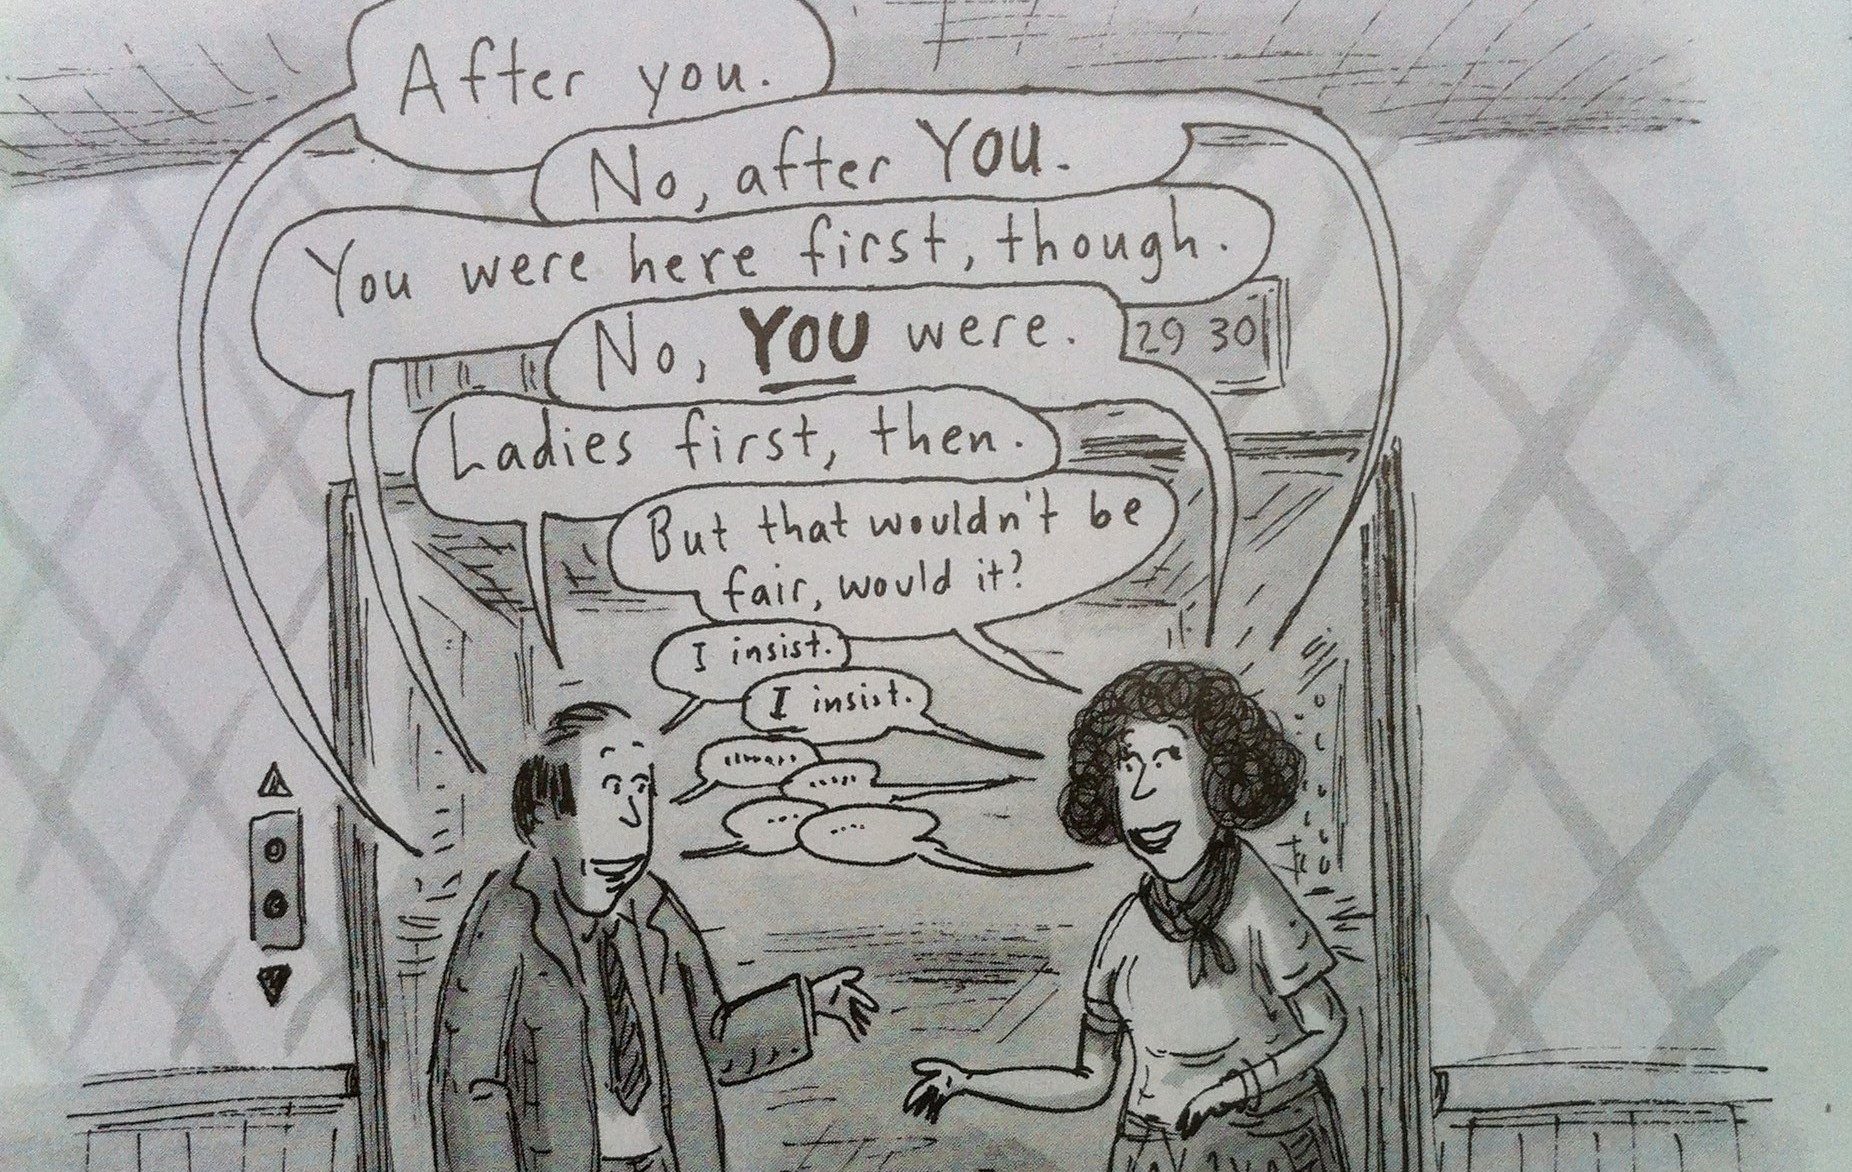 After you.
No, after YOU.
You were here first, though.
No, YOU were.
29 30
Ladies first, then.
But that wouldn't be
fair, would it?
I insist.
I insist.